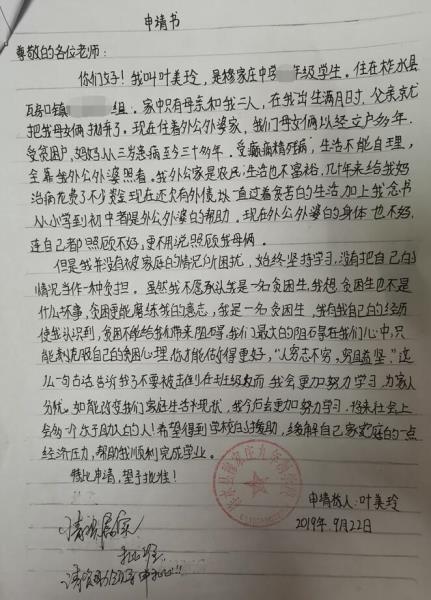 申请书
尊敬的各位老师：
你们好！我叫叶美玲，是穆家庄中学 年级学生。住在柞水县
瓦房口镇 组。家中只有母亲和我二人，在我出生满月时，父亲就
把我母女俩抛弃了。现在住着外公外婆家，我们母女俩以经立户多年。
受贫困户，妈妈从三岁患病至今三十多年。受癫痫精残病，生活不能自理，
全靠我外公外婆照看。我外公家是农民，生活也不富裕，几十年来给我妈
治病花费了不少资金，现在还欠有外债，以直过着贫苦的生活，加上我念书
从小学到初中都是外公外婆的帮助，现在外公外婆的身体也不好，
连自己都照顾不好，更不用说照顾我母俩。
但是我并没有被家庭的情况所困扰，始终坚持学习，没有把自己的
情况当作一种负担。虽然我不愿承认我是一名贫困生，我想，贫困生也不是
什么坏事，贫困更能磨练我的意志，我是一名贫困生，我有我自己的经历
使我认识到，贫困不能给我们带来阻碍，我们最大的阻碍在我们心中，只
能克服自己的贫困心理，你才能做得更好，“人穷志不穷，穷且益坚”，这
么一句古话告诉了我不要被击倒，在班级教而我会更加努力学习，为家人
分忧。如能改变我们家庭生活补现状，我今后会更加努力学习，将来社会上
会多一个乐于助人的人！希望得到学校的援助，缓解自己家庭的一点
经济压力，帮助我顺利完成学业。
特此申请，望予批准！
申请核人：叶美玲
2019年，9月22日
情况属实